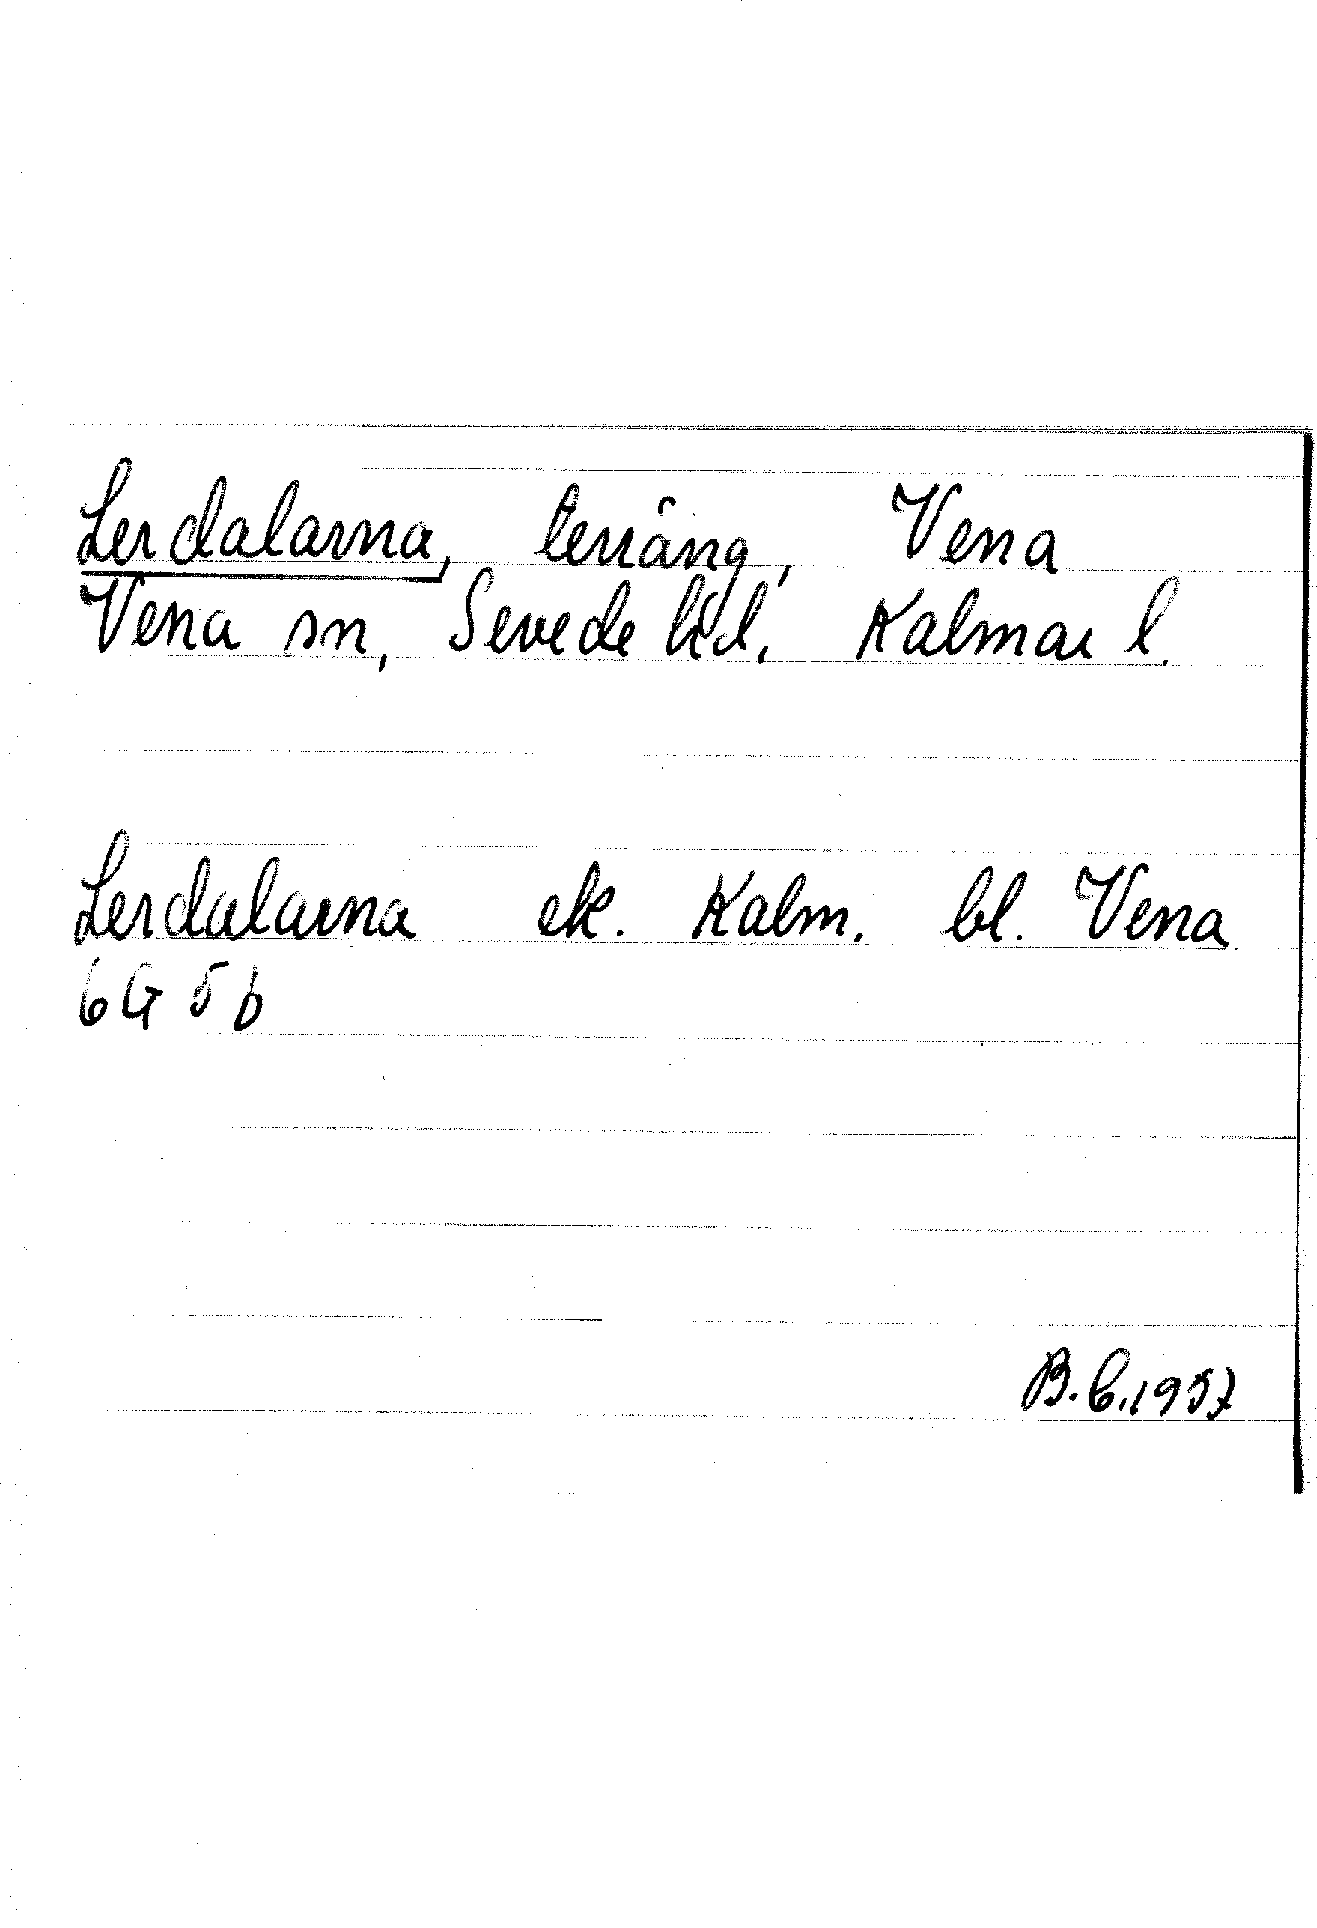 Lerdalarna, terräng, Vena
Vena sn, Sevede hd, Kalmar l.
Lerdalarna ek. Kalm. bl. Vena
6G 5 b
B.C.1957